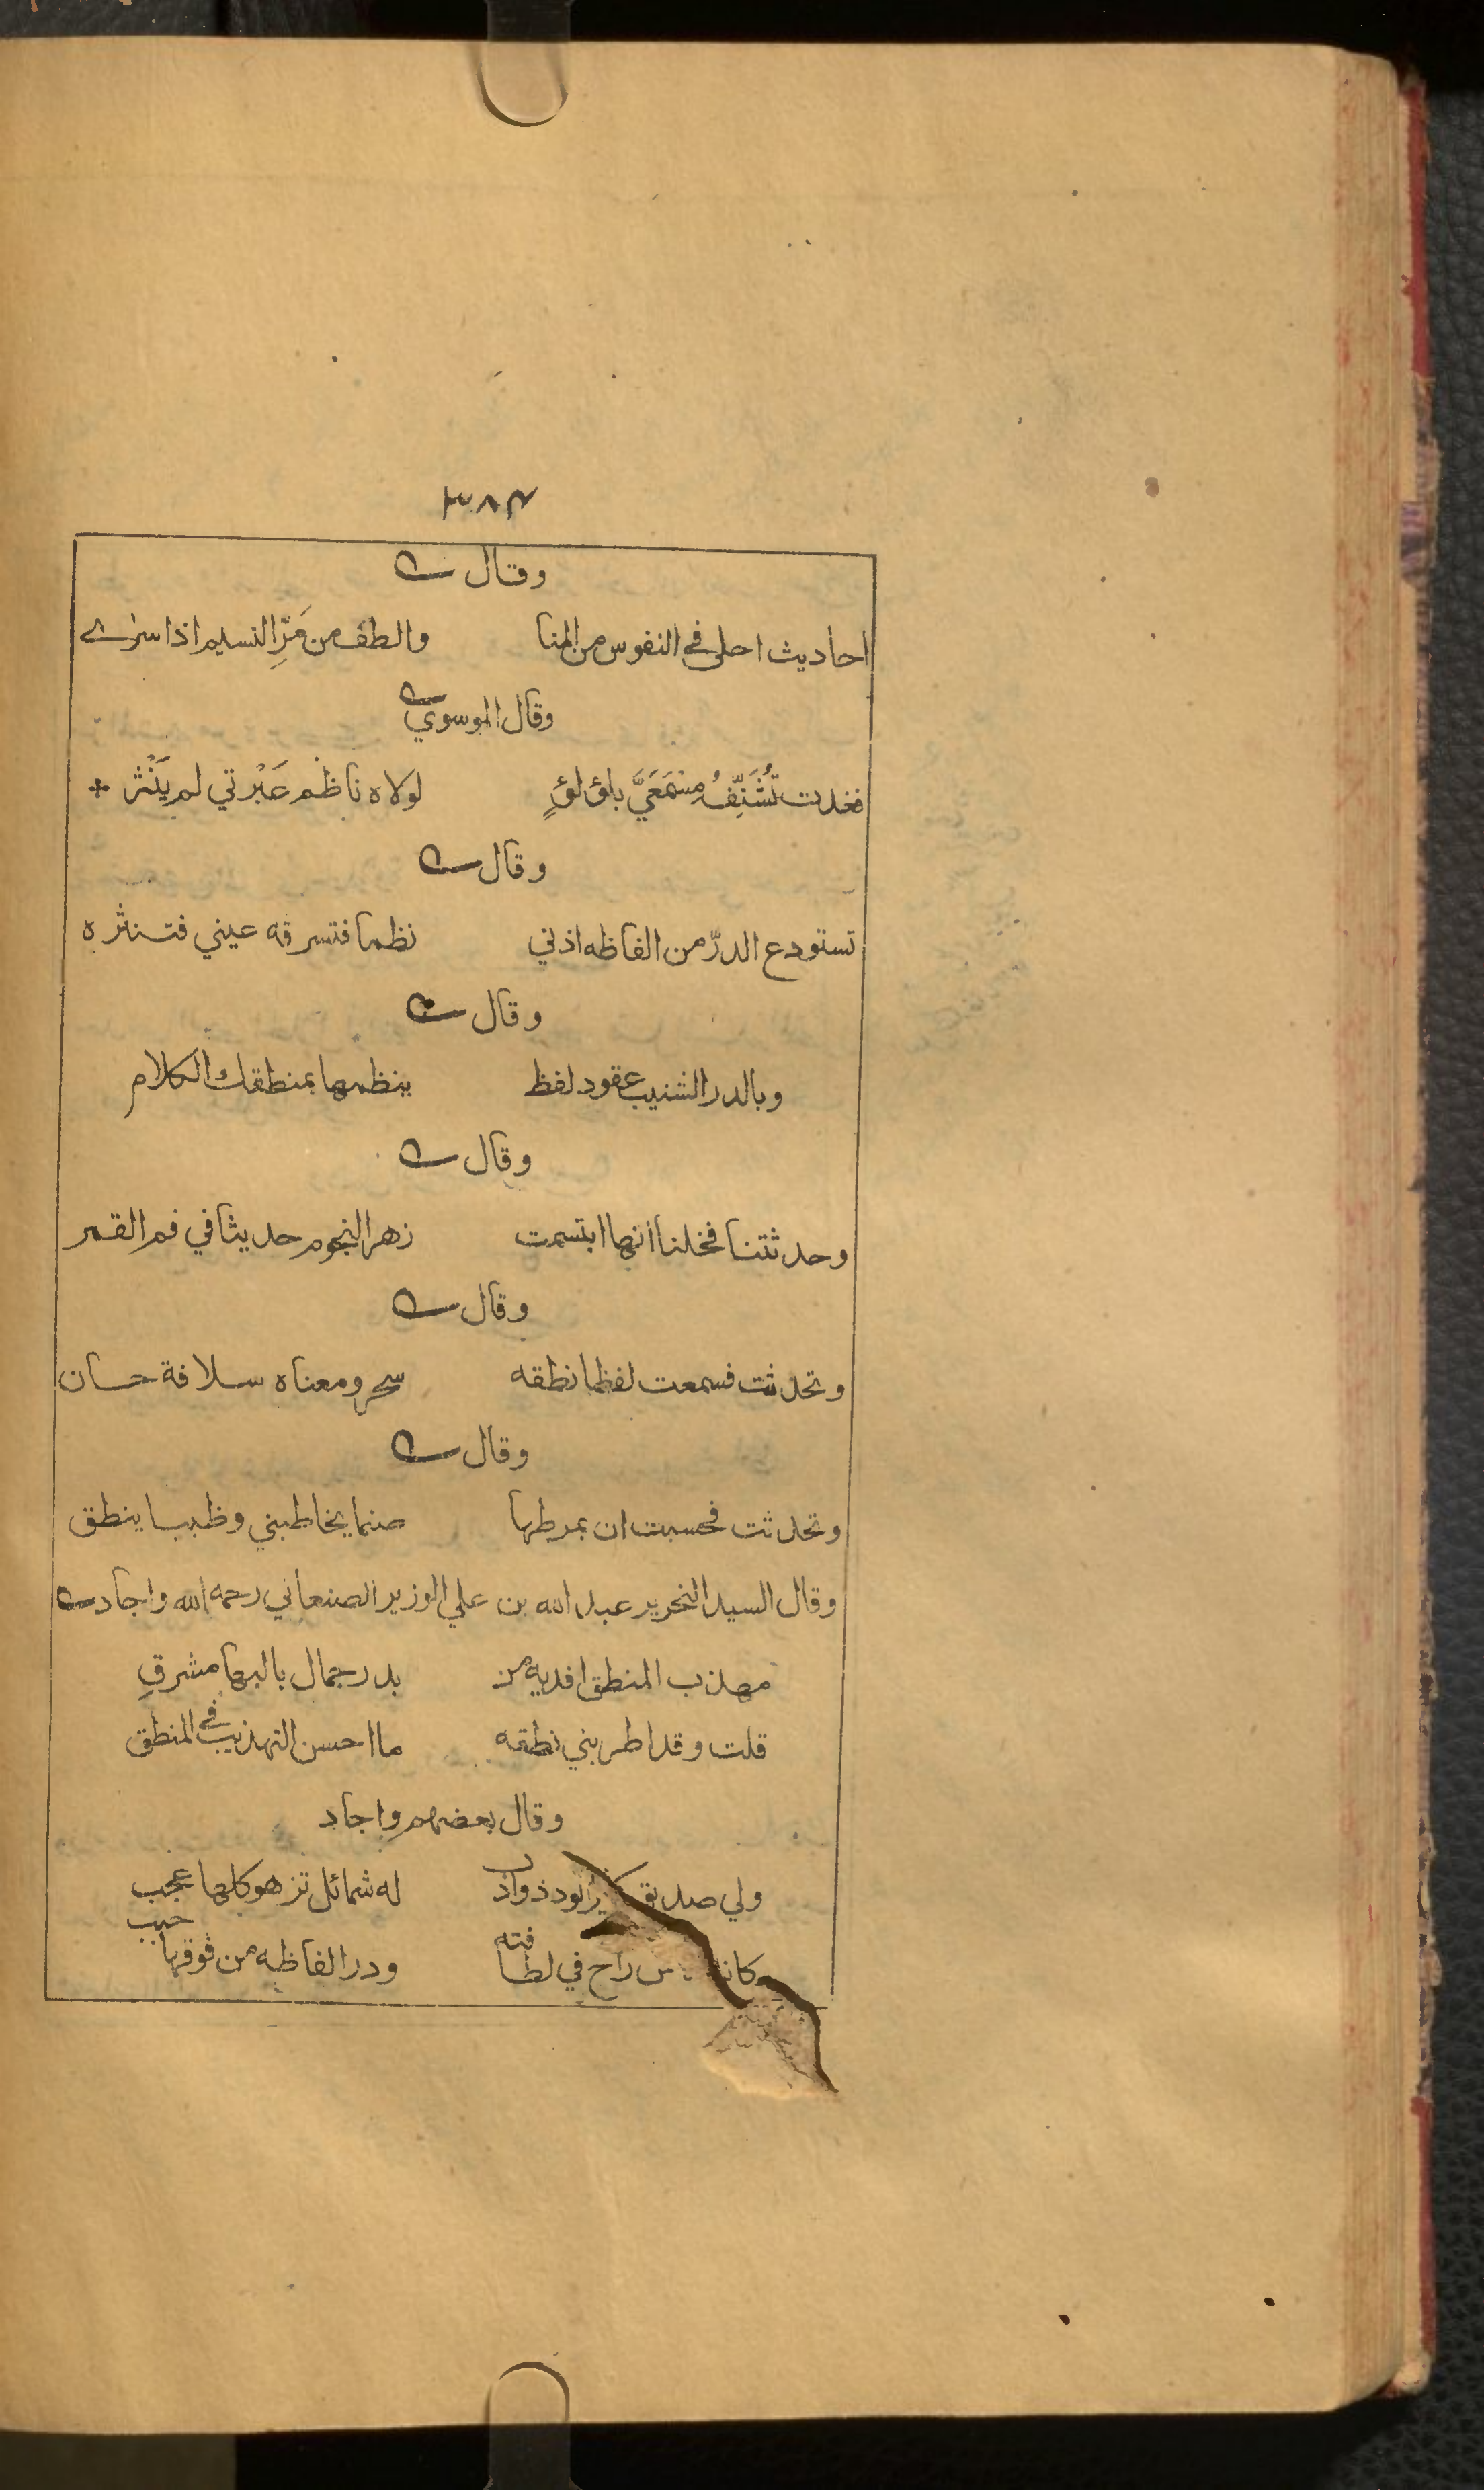 ٣٨٤
وقال
احاديث احلى في النفوس من المنا والطف من مَرِّ النسيم اذا سرى
وقال الموسوي
فغدت تُشَنِّفُ مِسْمَعَيَّ بلؤلؤٍ لولاه ناظم عَبْرتي لم يَنْثر
وقال
تستودع الدرّ من الفاظه اذني نظما فتسرقه عيني فتنثره
وقال
وبالدر الشنيب عقود لفظ ينظمها بمنطقك الكلام
وقال
وحدثتنا فخلنا انها ابتسمت زهر النجوم حديثا في فم القمر
وقال
وتحدثت فسمعت لفظا نطقه سحر ومعناه سلافة حسان
وقال
وتحدثت فحسبت ان بمرطها صنما يخاطبني وظبيا ينطق
وقال السيد النحرير عبد الله بن علي الوزير الصنعاني رحمه الله واجاد
مهذب المنطق افديه من بدر جمال بالبها مشرقِ
قلت وقد اطربني نطقه ما احسن التهذيب في المنطق
وقال بعضهم واجاد
ولي صديق الود ذو ادب له شمائل تزهو كلها عجب
راح في لطافته ودر الفاظه من فوقها حبب